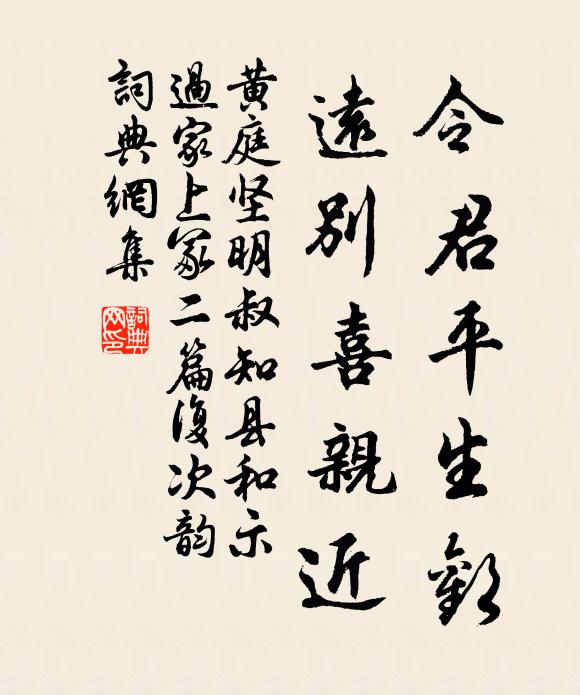 令君平生歡
遠別喜親近
黄庭坚明叔知县和示
過家上冢二篇復次韵
詞典網集
詞典
网印